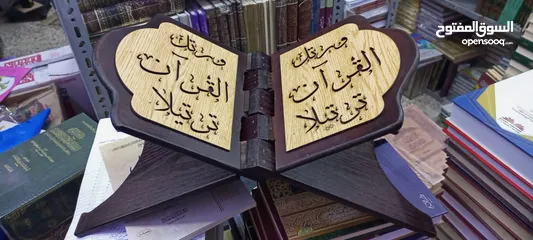 السوق المفتوح
opensooq.com
ورتل
القرآن
ترتيلا
ورتل
القرآن
ترتيلا